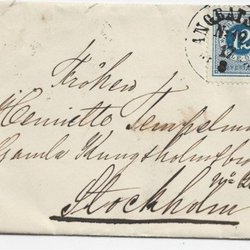 ÅNGBÅT
12
Fröken
Henriette Tempelma
Gamla Kungsholmsbro
Stockholm